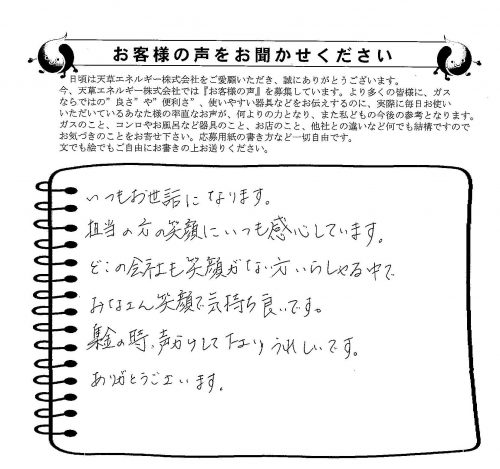 お客様の声をお聞かせください
日頃は天草エネルギー株式会社をご愛顧いただき、誠にありがとうございます。
今、天草エネルギー株式会社では『お客様の声』を募集しています。より多くの皆様に、ガス
ならではの"良さ"や"便利さ"、使いやすい器具などをお伝えするのに、実際に毎日お使い
いただいているあなた様の率直なお声が、何よりの力となり、また私どもの今後の参考となります。
ガスのこと、コンロやお風呂など器具のこと、お店のこと、他社との違いなど何でも結構ですので
お気づきのことをお寄せ下さい。応募用紙の書き方など一切自由です。
文でも絵でもご自由にお書きの上お送りください。
いつもお世話になります。
担当の方の笑顔にいつも感心しています。
どこの会社も笑顔がない方いらしゃる中で
みなさん笑顔で気持ち良いです。
集金の時、声かけして下さりうれしいです。
ありがとうございます。